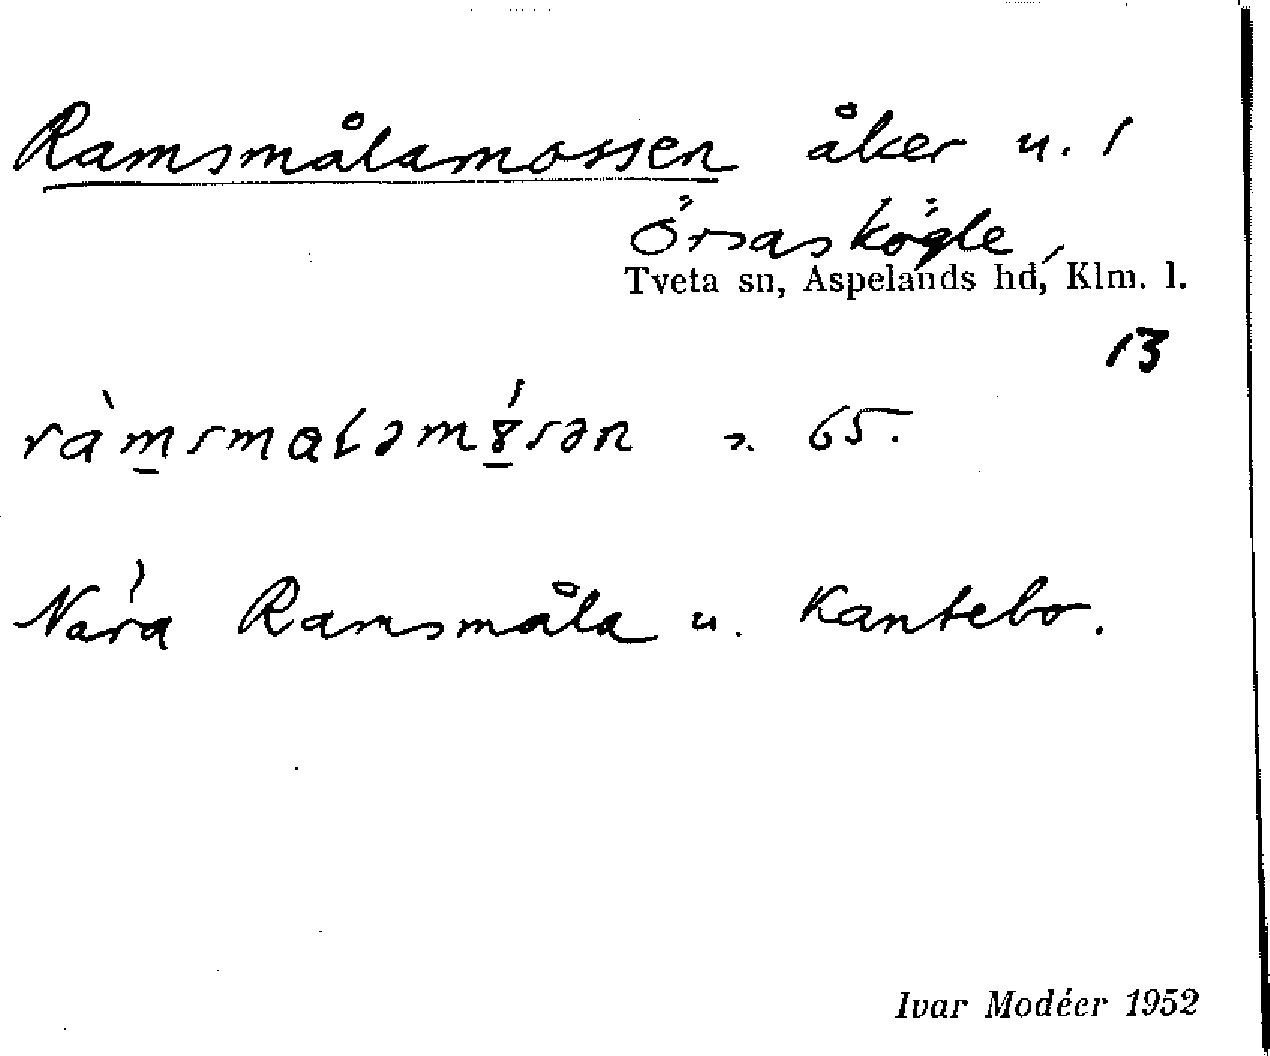 Ramsmålamossen åker u. 1
Örsaskögle,
Tveta sn, Aspelands hd, Klm. l.
13
ràmsmaɬəmɤ́sən 2. 65.
Nära Ramsmåla u. Kantebo.
Ivar Modéer 1952